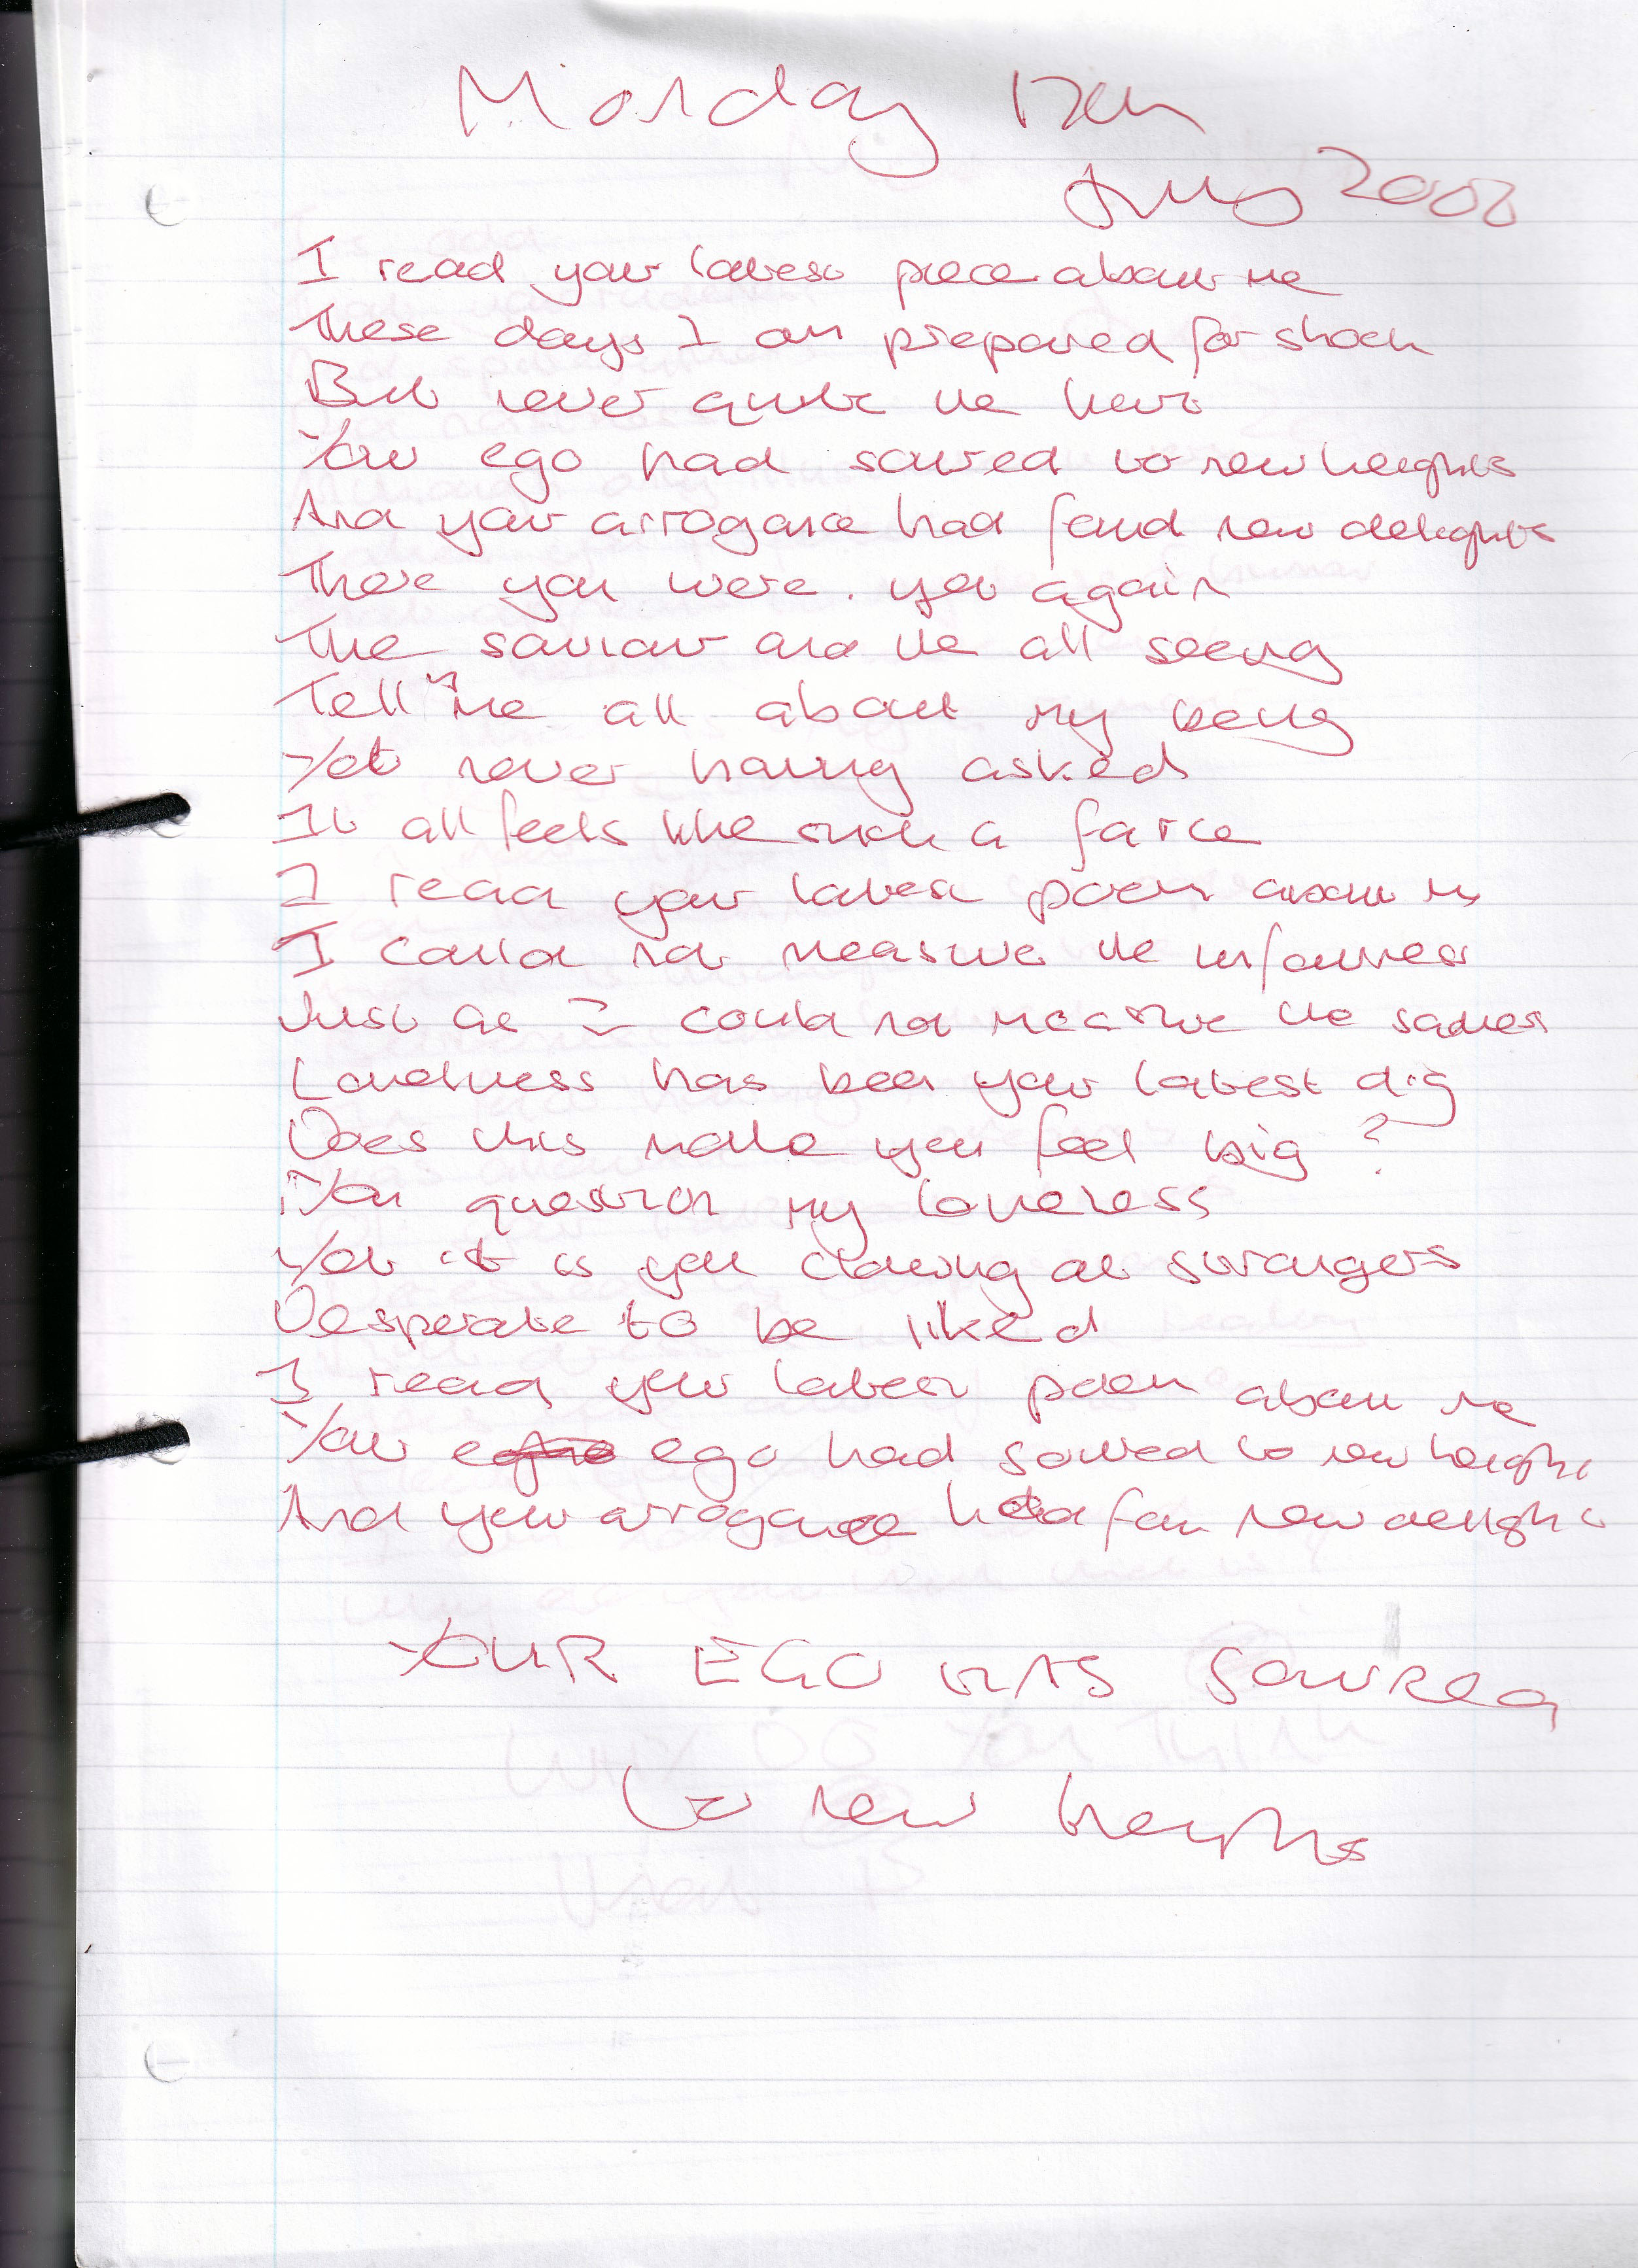 Monday 12th
Aug 2002
I read your latest piece about me
These days I am prepared for shock
But never quite the hurt
Your ego had soured to new heights
And your arrogance had found new delights
There you were. yet again
The saviour and the all seeing
Tell me all about my being
Yet never having asked
It all feels like such a farce
I read your latest poem about me
I could not measure the unfairness
Just as I could not measure the sadness
Loneliness has been your latest dig
Does this make you feel big?
You question my loneliness
Yet it is you clawing at strangers
Desperate to be liked
I read your latest poem about me
Your ego had soured to new heights
And your arrogance had found new delights
YOUR EGO HAS SOURED
to new heights